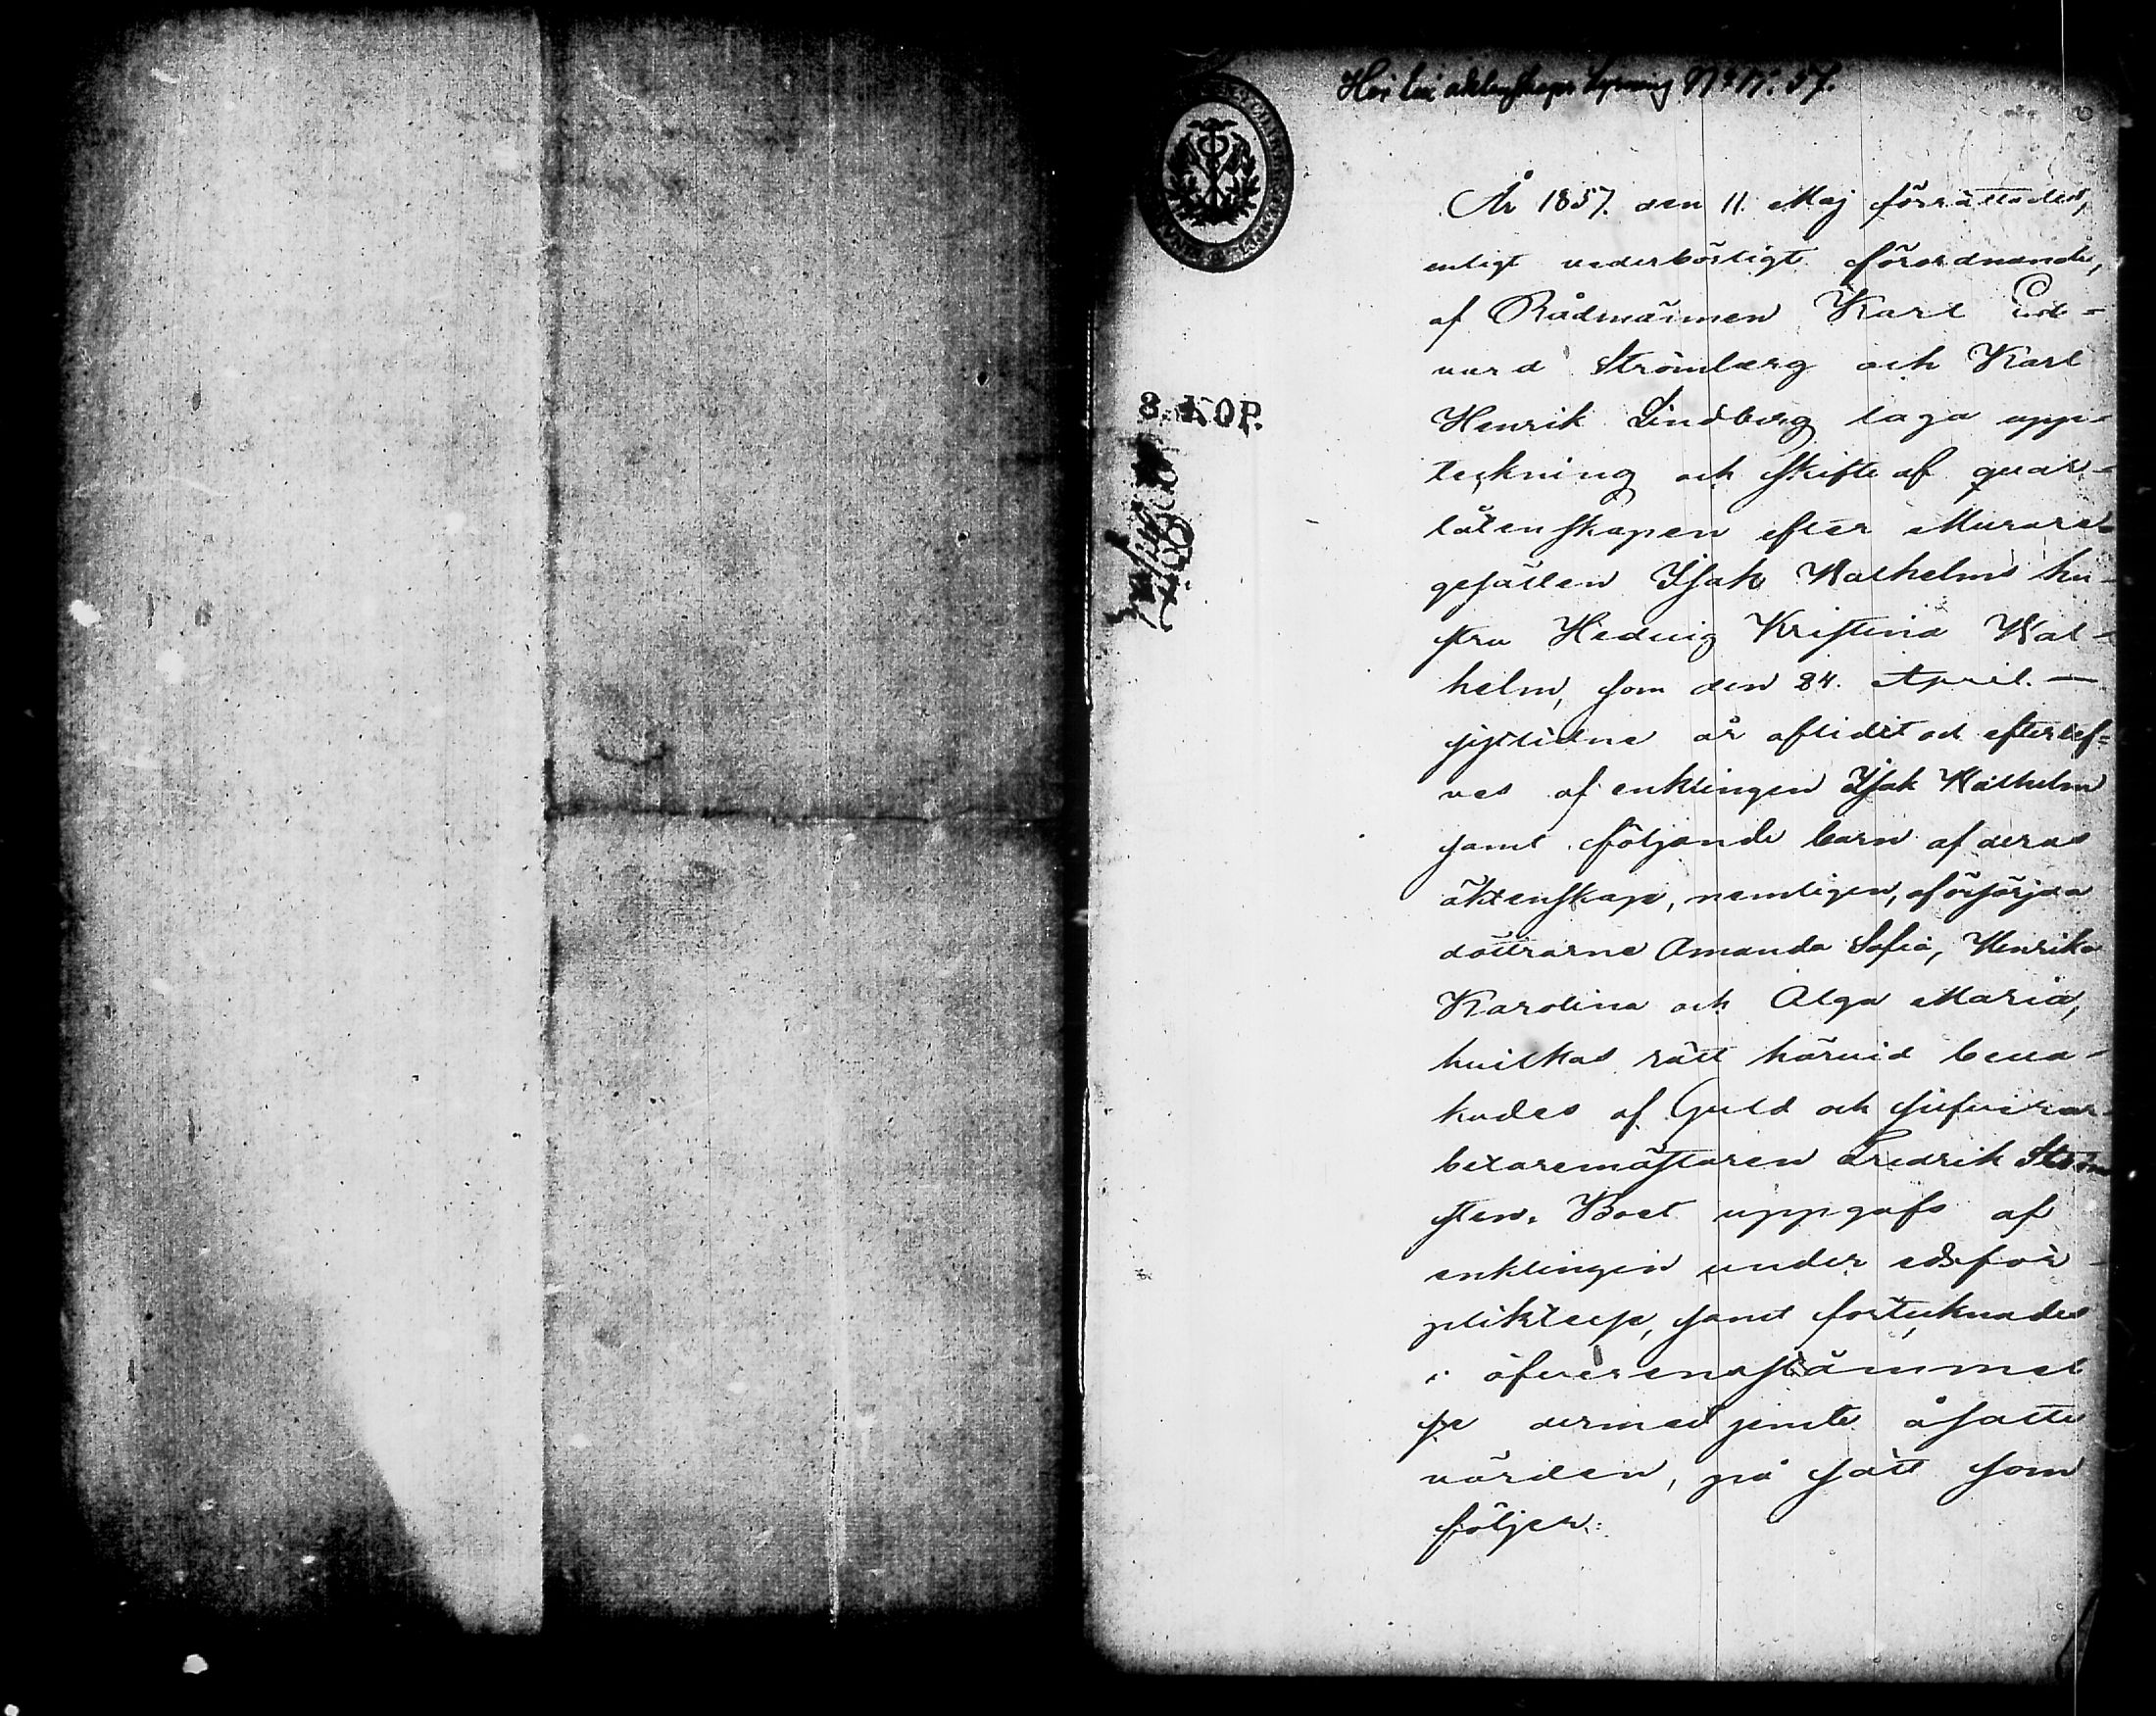 År 1857. den 11. Maj förrättades,
enligt vederbörligt förordnande,
af Rådmännen Karl Ed-
vard Strömberg och Karl
Henrik Lindberg laga upp-
teckning och skifte af qvar-
låtenskapen efter Murare-
gesällen Isak Walhelms hu-
stru Hedvig Kristina Wal-
helm, som den 24. April. —
sistlidne år aflidit och efterlef-
ves af enklingen Isak Walhelm
samt följande barn af deras
äktenskap, nemligen, oförsörjda
döttrarne Amanda Sofia, Henrika
Karolina och Alga Maria,
hvilkas rätt härvid beva-
kades af Guld och silfverar-
betaremästaren Fredrik Ström
sten. Boet uppgafs af
enklingen under edsför-
pliktelse, samt förtecknades
i öfverensstämmel
se dermed jemte åsatte
värden, på sätt som
följer:
3. KOP.